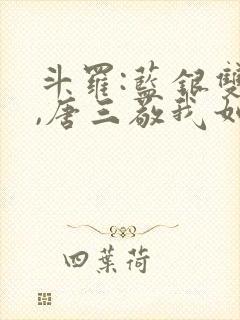 斗羅:藍銀雙
,唐三敬我如
四葉荷